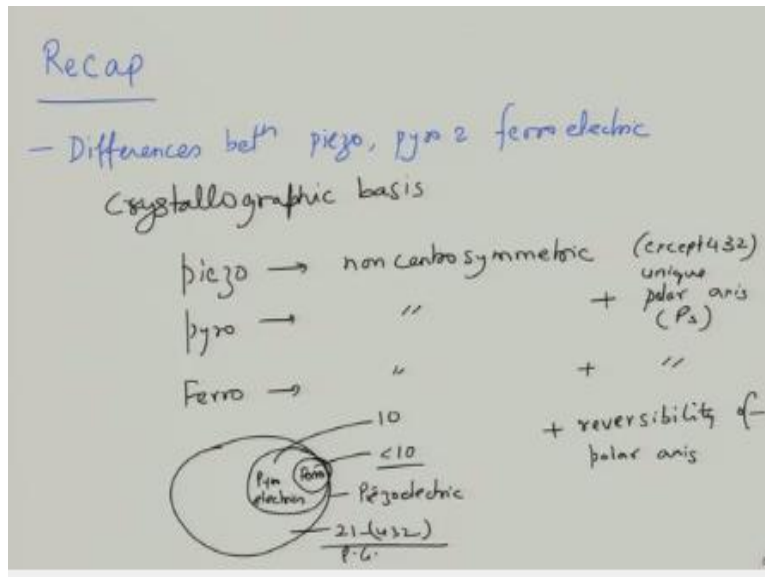 Recap
- Differences betn piezo, pyro & ferroelectric
Crystallographic basis
piezo → noncentrosymmetric (except 432)
pyro → " + unique polar axis (Ps)
Ferro → " + "
+ reversibility of polar axis
10
<10
Pyro electric
Ferro
Piezoelectric
21-(432)
P.G.